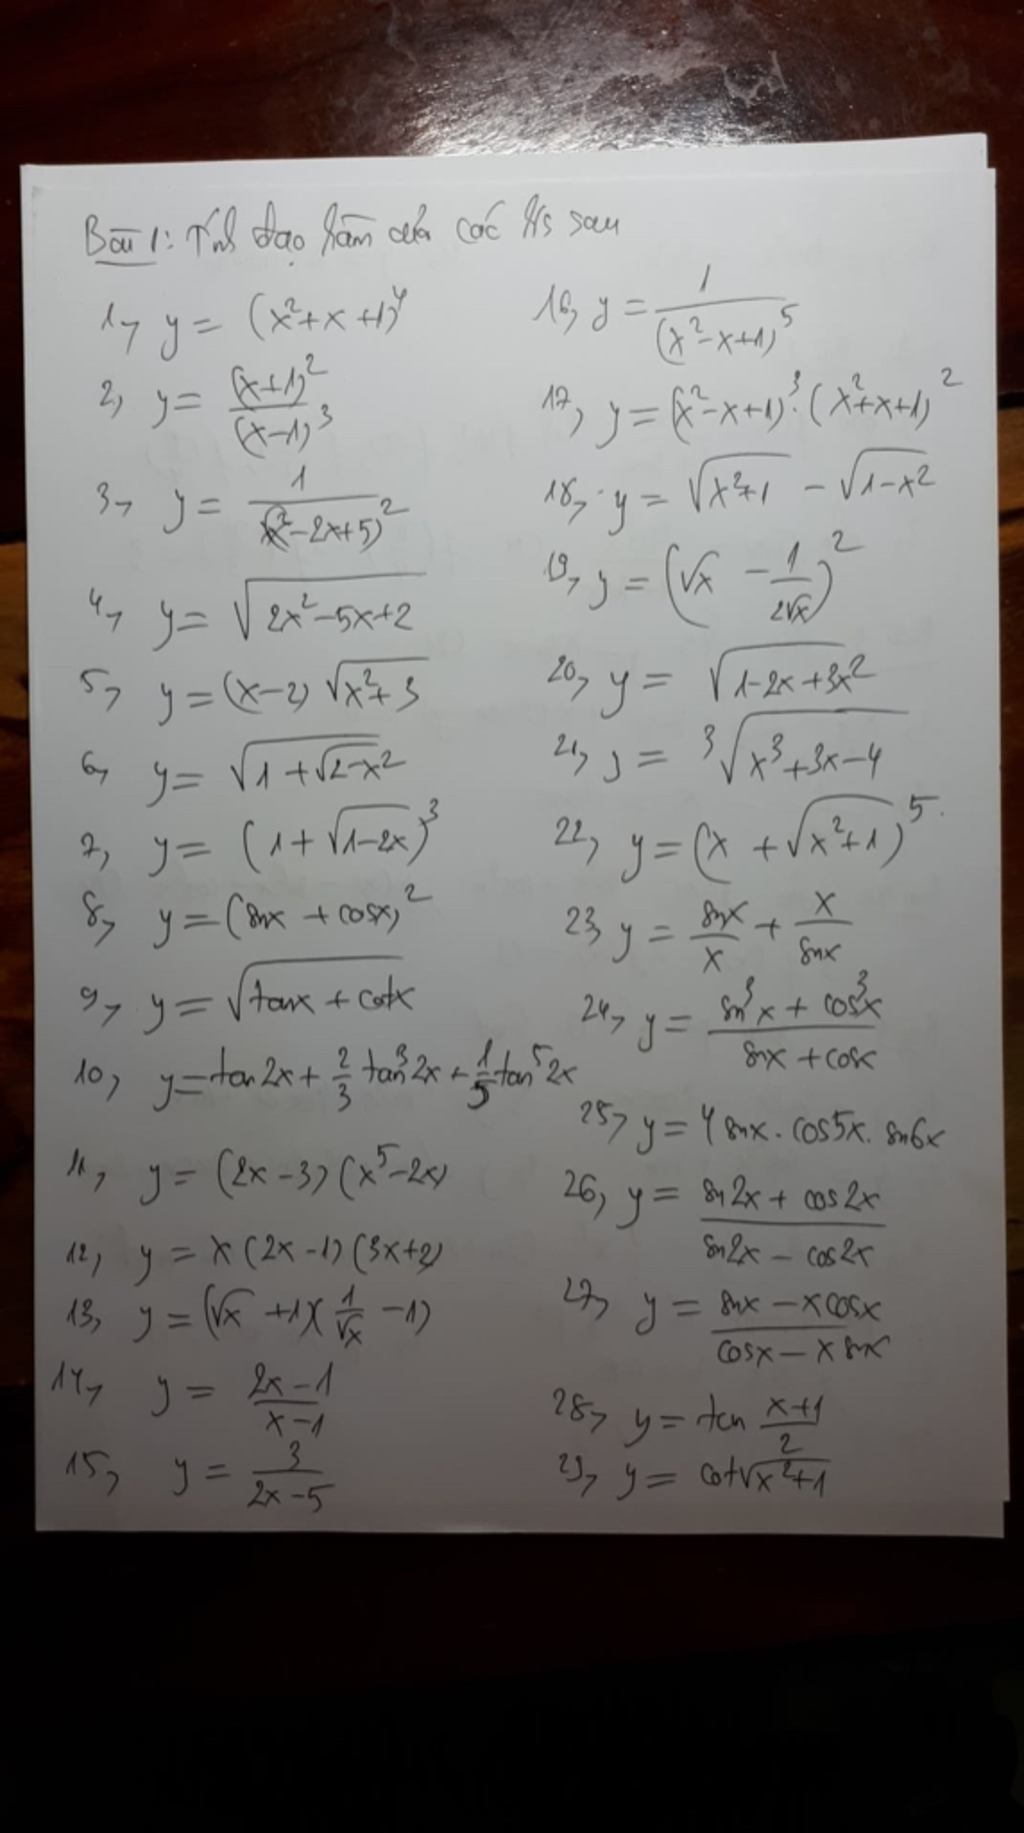 Bài 1: Tính đạo hàm của các h/s sau
1, y = (x²+x+1)⁴
2, y = (x+1)² / (x-1)³
3, y = 1 / (x²-2x+5)²
4, y = √(2x²-5x+2)
5, y = (x-2) √(x²+3)
6, y = √(1+√(2-x²))
7, y = (1+√(1-2x))³
8, y = (sinx + cosx)²
9, y = √(tanx + cotx)
10, y = tan2x + 2/3 tan³2x + 1/5 tan⁵2x
11, y = (2x-3)(x⁵-2x)
12, y = x(2x-1)(3x+2)
13, y = (√x +1)(1/√x -1)
14, y = (2x-1) / (x-1)
15, y = 3 / (2x-5)
16, y = 1 / (x²-x+1)⁵
17, y = (x²-x+1)³.(x²+x+1)²
18, y = √(x²+1) - √(1-x²)
19, y = (√x - 1/(2√x))²
20, y = √(1-2x+3x²)
21, y = ³√(x³+3x-4)
22, y = (x + √(x²+1))⁵
23, y = sinx/x + x/sinx
24, y = (sin³x + cos³x) / (sinx + cosx)
25, y = 4 sinx . cos5x . sin6x
26, y = (sin2x + cos2x) / (sin2x - cos2x)
27, y = (sinx - xcosx) / (cosx - x sinx)
28, y = tan (x+1)/2
29, y = cot√(x²+1)